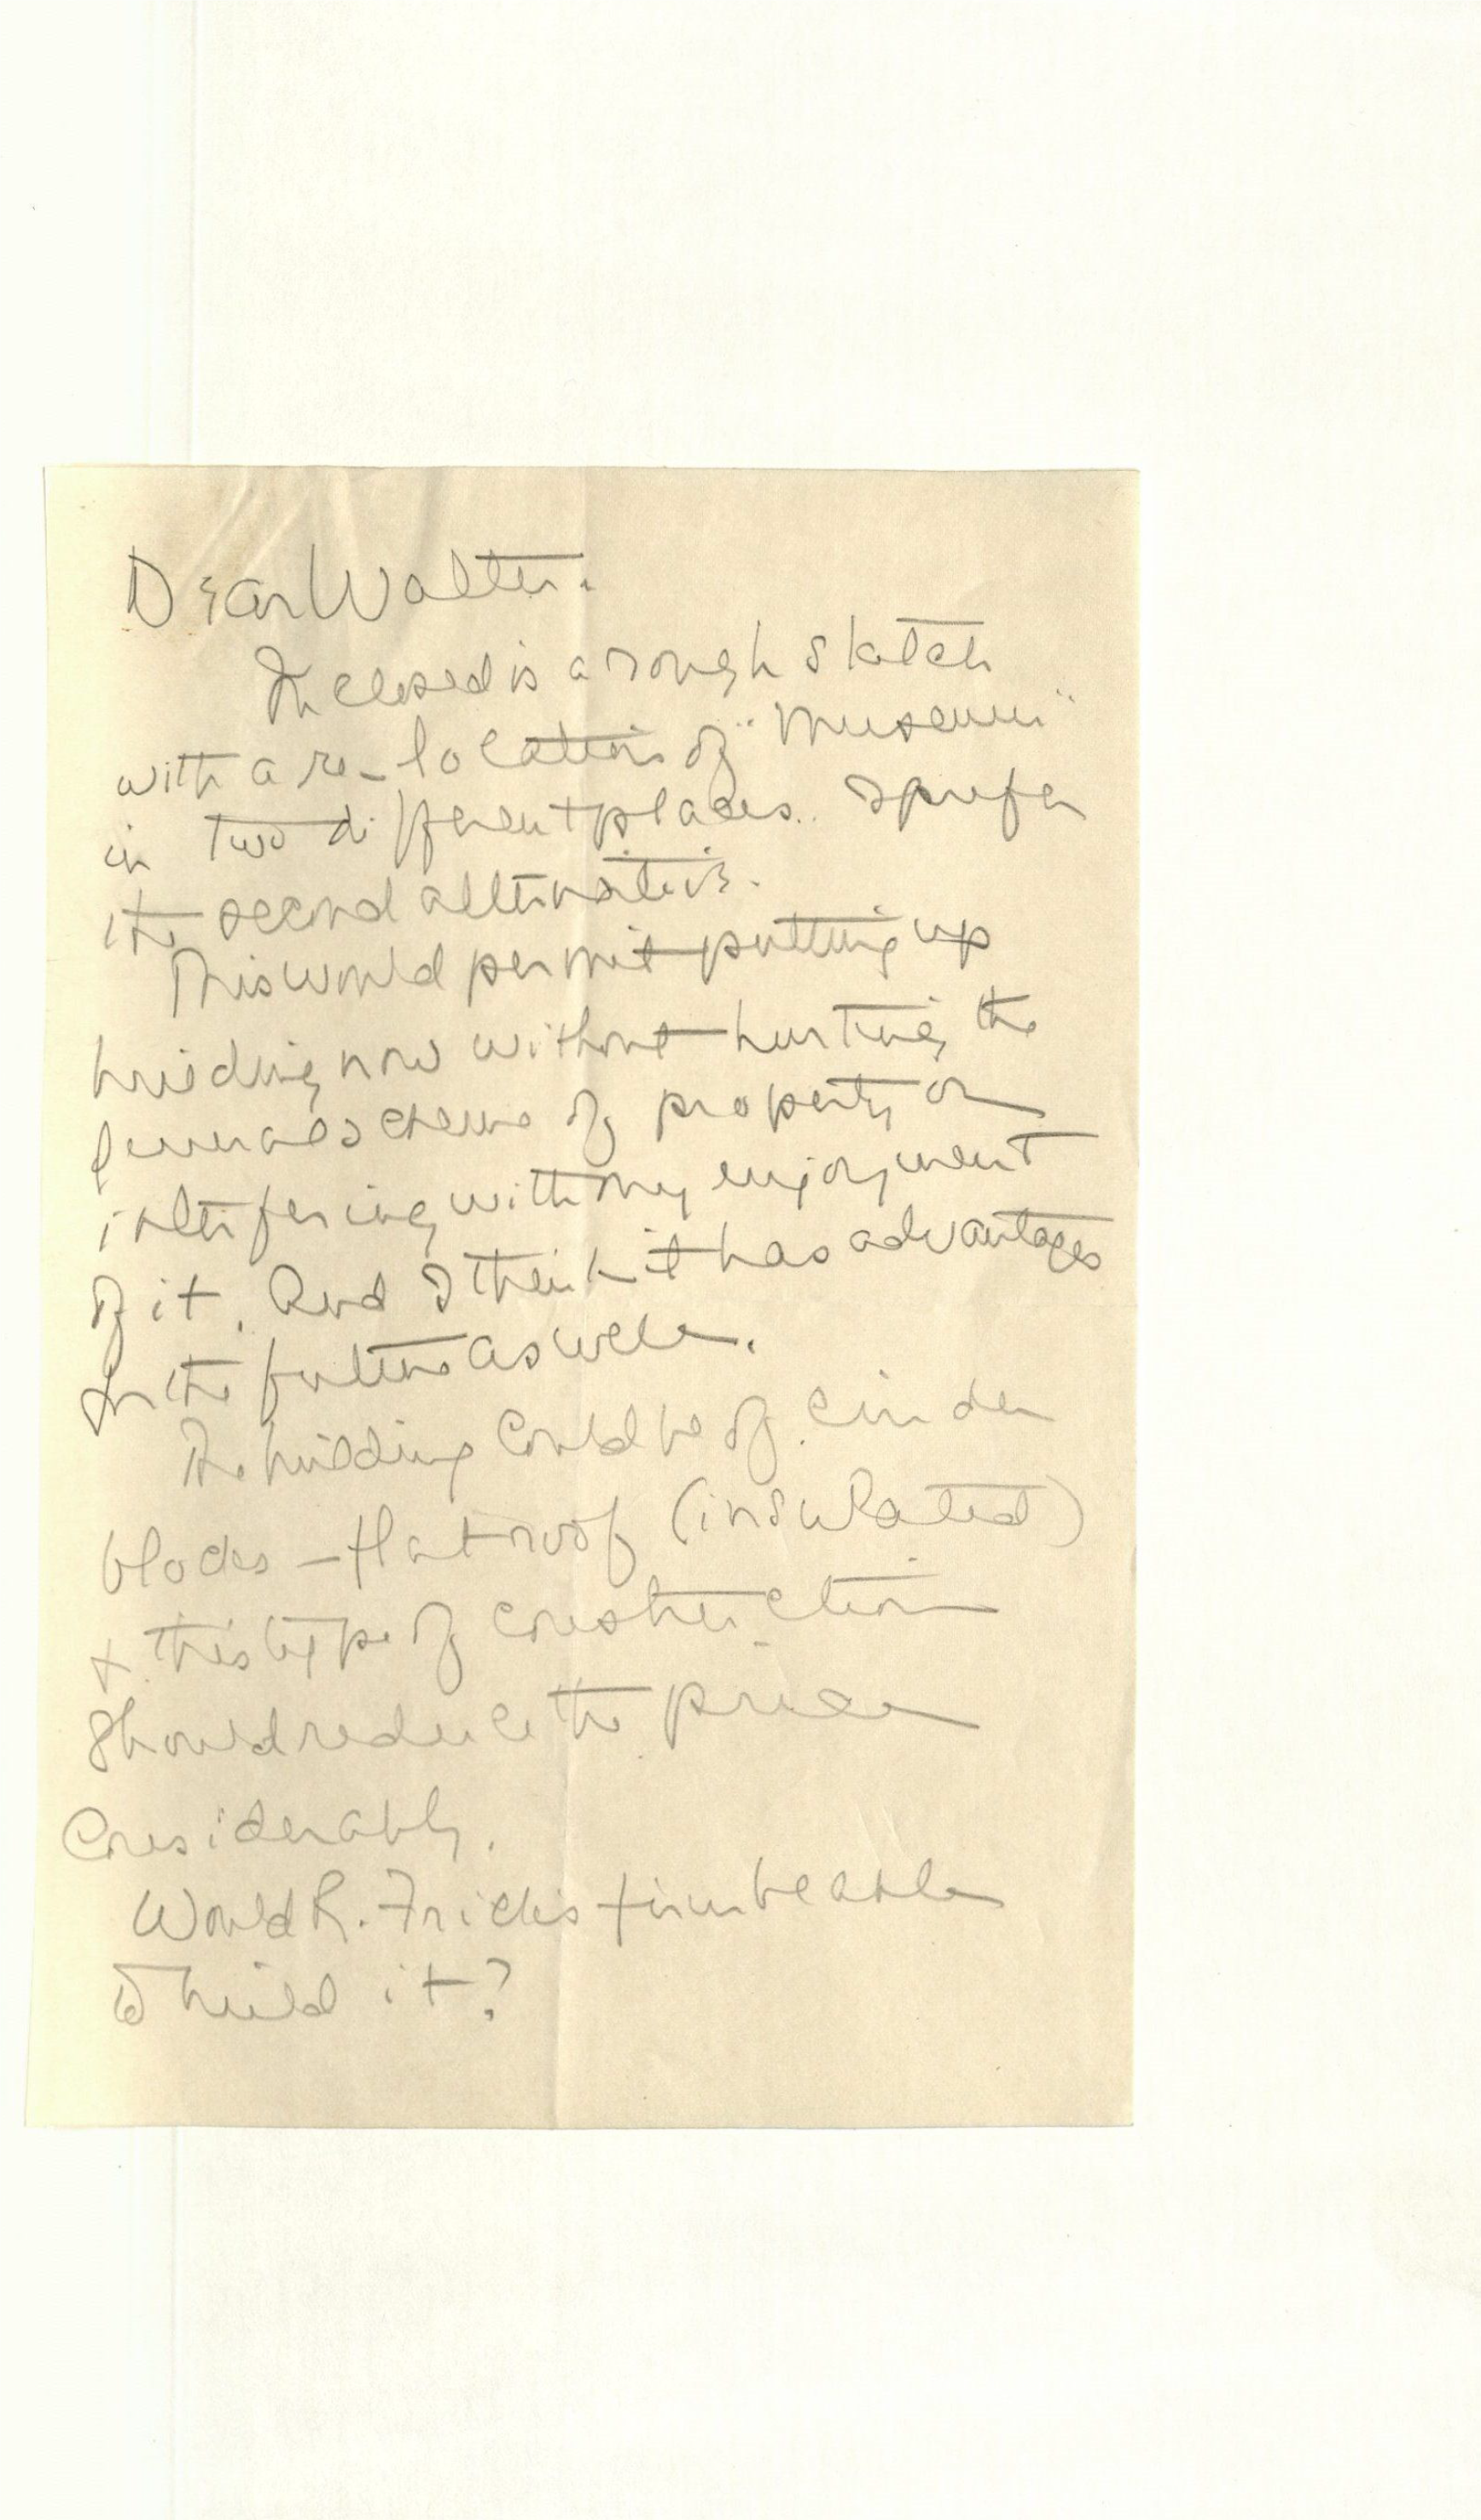 Dear Walter.
Inclosed is a rough sketch
with a re-location of "Museum"
in two different places. I prefer
the second alternative.
This would permit putting up
building now without hurting the
general scheme of property or
interfering with my enjoyment
of it. And I think it has advantages
for the future as well.
The building could be of cinder
blocks - flat roof (insulated)
+ this type of construction
should reduce the price
considerably.
Would R. Frick's firm be able
to build it?